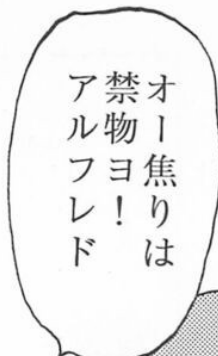 オー焦りは
禁物ヨ！
アルフレド